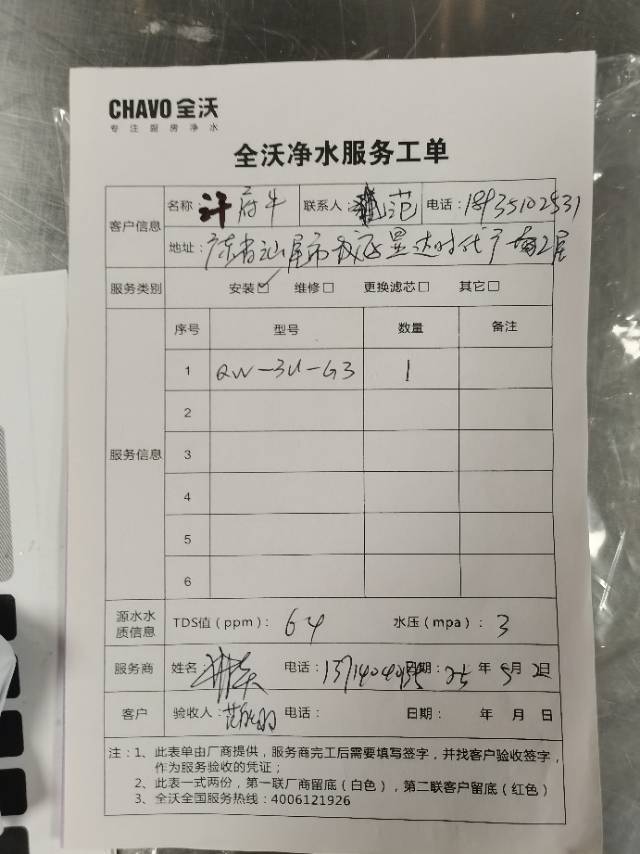 CHAVO 全沃
专注厨房净水
全沃净水服务工单
客户信息
名称 府牛 联系人: 范 电话:
地址: 广东省汕尾市 时代广
服务类别 安装☑ 维修□ 更换滤芯□ 其它□
服务信息
序号 型号 数量 备注
1 QW-3U-G3 1
2
3
4
5
6
源水水质信息 TDS值(ppm): 64 水压(mpa): 3
服务商 姓名 电话: 日期: 25 年 5 月 2日
客户 验收人: 电话: 日期: 年 月 日
注:1、此表单由厂商提供,服务商完工后需要填写签字,并找客户验收签字,
作为服务验收的凭证;
2、此表一式两份,第一联厂商留底(白色),第二联客户留底(红色)
3、全沃全国服务热线:4006121926